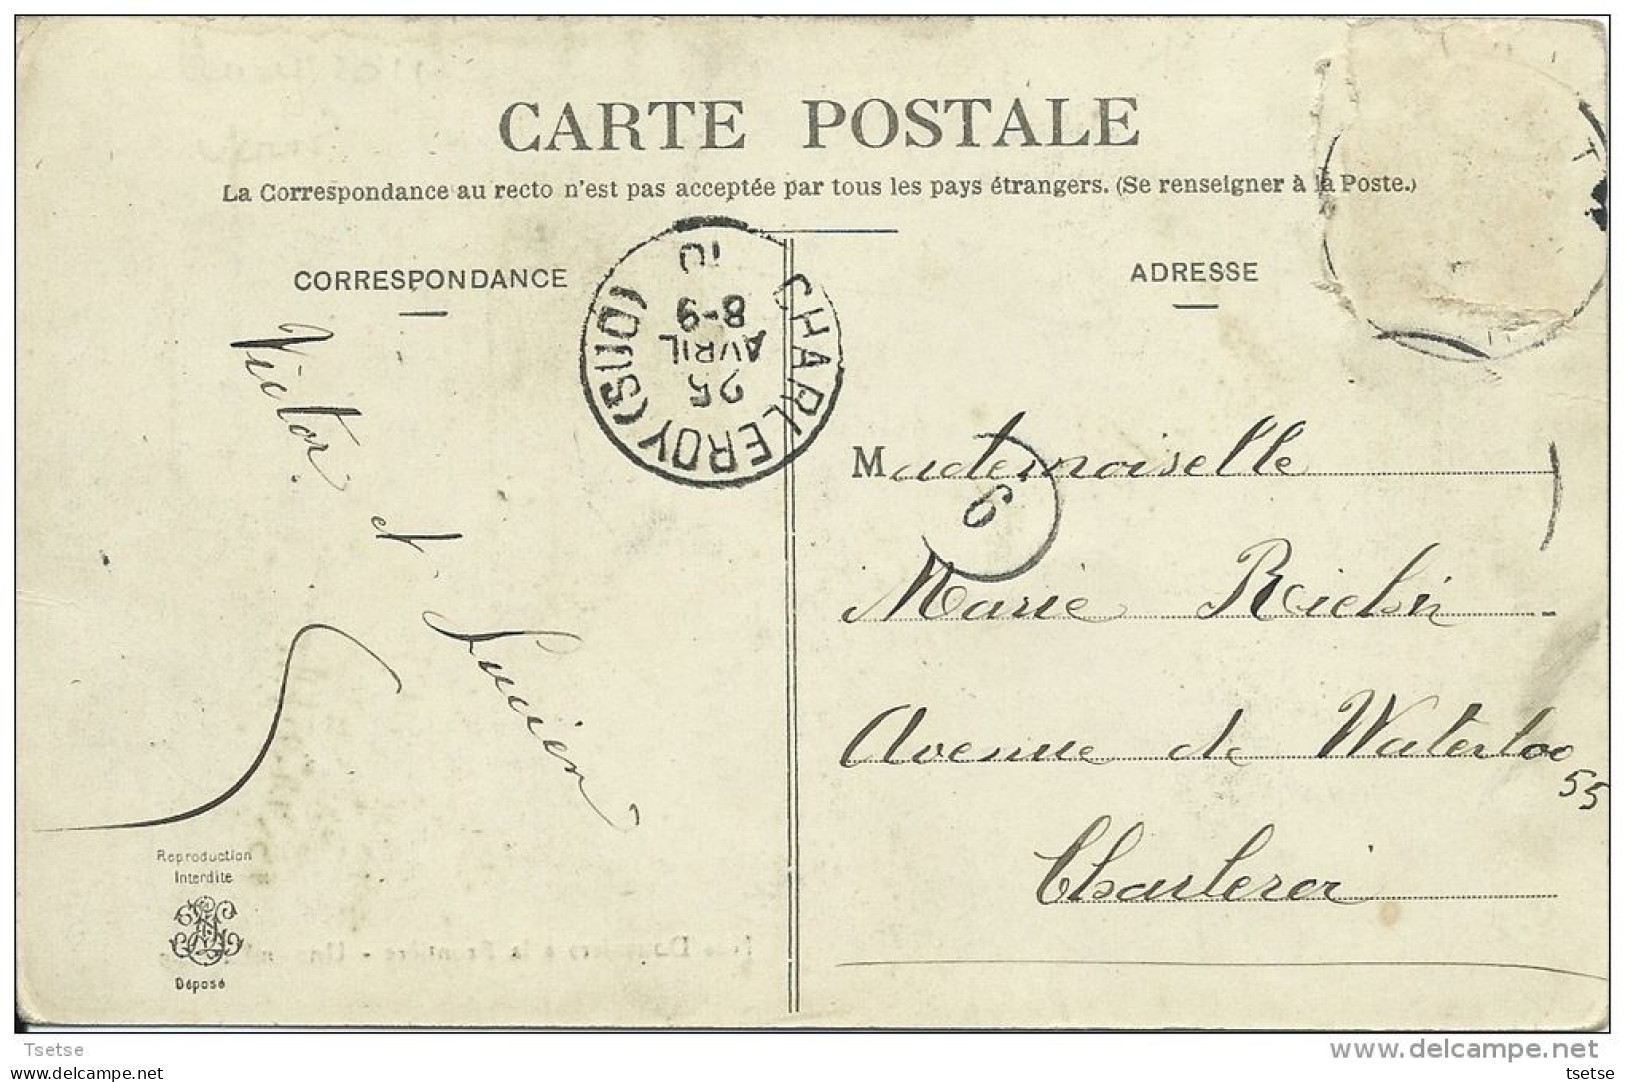 CARTE POSTALE
La Correspondance au recto n'est pas acceptée par tous les pays étrangers. (Se renseigner à la Poste.)
CORRESPONDANCE
ADRESSE
CHARLEROY (SUD)
25
AVRIL
8-9
10
Victor et Lucien
Mademoiselle
9
Marie
Avenue de Waterloo
55
Charleroi
Reproduction
Interdite
Déposé
Tsetse
www.delcampe.net
tsetse